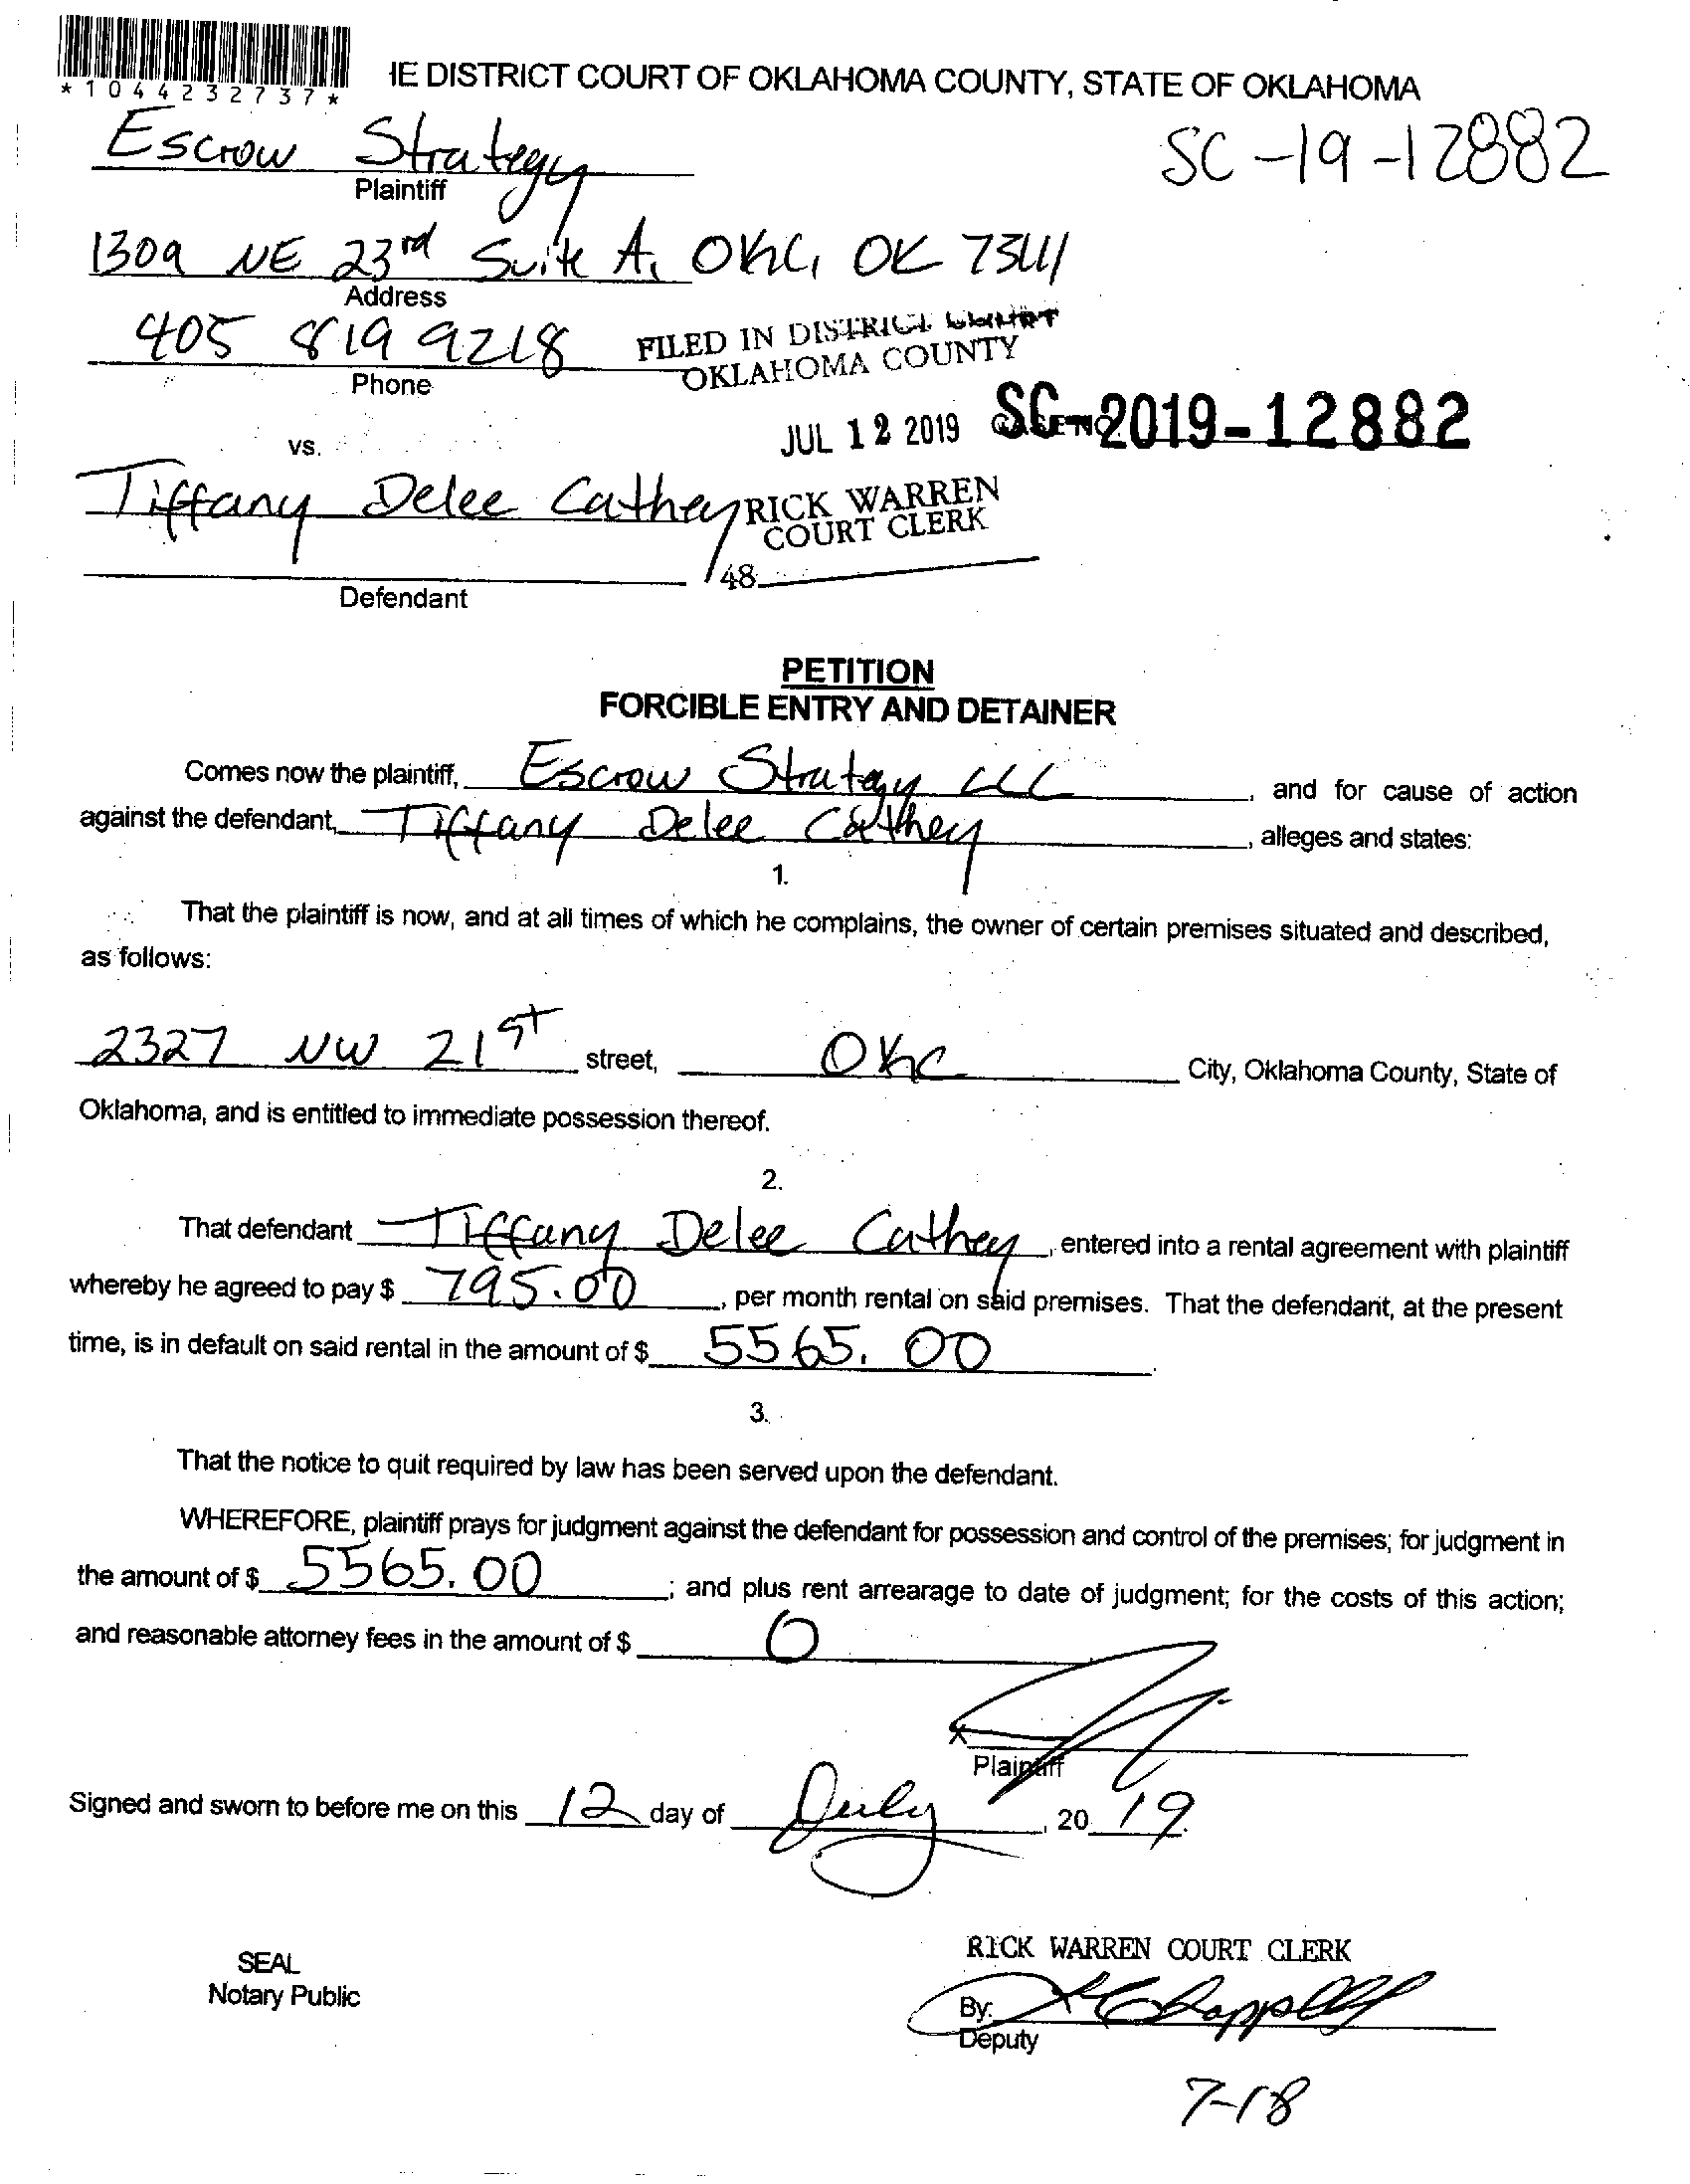 *1044232737*
IE DISTRICT COURT OF OKLAHOMA COUNTY, STATE OF OKLAHOMA
Escrow Strategy
SC-19-12882
Plaintiff
1309 NE 23rd Suite A, OKC, OK 73111
Address
405 819 9218
FILED IN DISTRICT COURT
OKLAHOMA COUNTY
Phone
JUL 12 2019
SC-2019-12882
vs.
Tiffany Delee Cathey
RICK WARREN
COURT CLERK
48
Defendant
PETITION
FORCIBLE ENTRY AND DETAINER
Comes now the plaintiff, Escrow Strategy LLC, and for cause of action
against the defendant, Tiffany Delee Cathey, alleges and states:
1.
That the plaintiff is now, and at all times of which he complains, the owner of certain premises situated and described,
as follows:
2327 NW 21st street, OKC City, Oklahoma County, State of
Oklahoma, and is entitled to immediate possession thereof.
2.
That defendant Tiffany Delee Cathey, entered into a rental agreement with plaintiff
whereby he agreed to pay $ 795.00, per month rental on said premises. That the defendant, at the present
time, is in default on said rental in the amount of $ 5565.00.
3.
That the notice to quit required by law has been served upon the defendant.
WHEREFORE, plaintiff prays for judgment against the defendant for possession and control of the premises; for judgment in
the amount of $ 5565.00; and plus rent arrearage to date of judgment; for the costs of this action;
and reasonable attorney fees in the amount of $ 0
X
Plaintiff
Signed and sworn to before me on this 12 day of July, 2019.
RICK WARREN COURT CLERK
SEAL
Notary Public
By: Chappell
Deputy
7-18